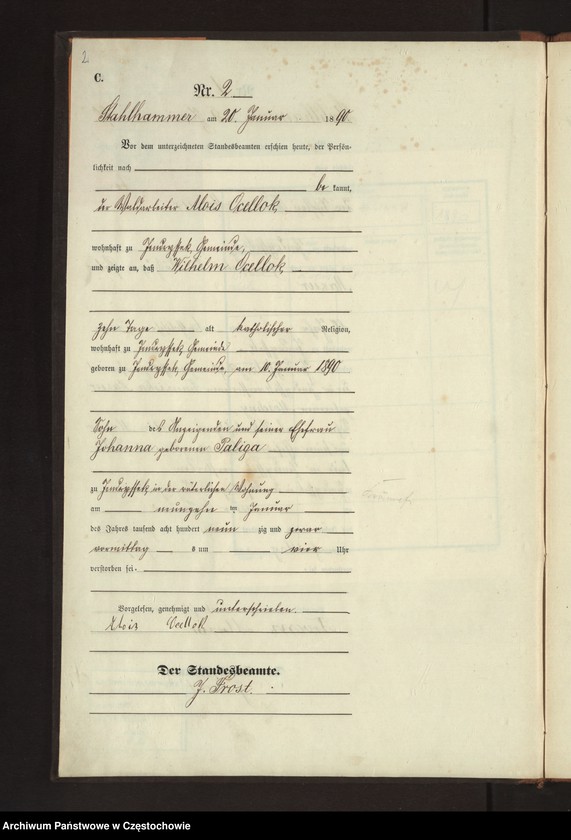 2
C.
Nr. 2
Stahlhammer am 20. Januar 1890
Vor dem unterzeichneten Standesbeamten erschien heute, der Persön-
lichkeit nach
be kannt,
der Waldarbeiter Alois Ocellok
wohnhaft zu Gemeinde,
und zeigte an, daß Wilhelm Ocellok
zehn Tage alt katholischer Religion,
wohnhaft zu Gemeinde
geboren zu Gemeinde, am 10. Januar 1890
Sohn des Anzeigenden und seiner Ehefrau
Johanna geborenen Paliga
zu in der väterlichen Wohnung
am neunzehn ten Januar
des Jahres tausend acht hundert neun zig und zwar
vormittag s um vier Uhr
verstorben sei.
Vorgelesen, genehmigt und unterschrieben.
Alois Ocellok
Der Standesbeamte.
J. Prost.
Archiwum Państwowe w Częstochowie